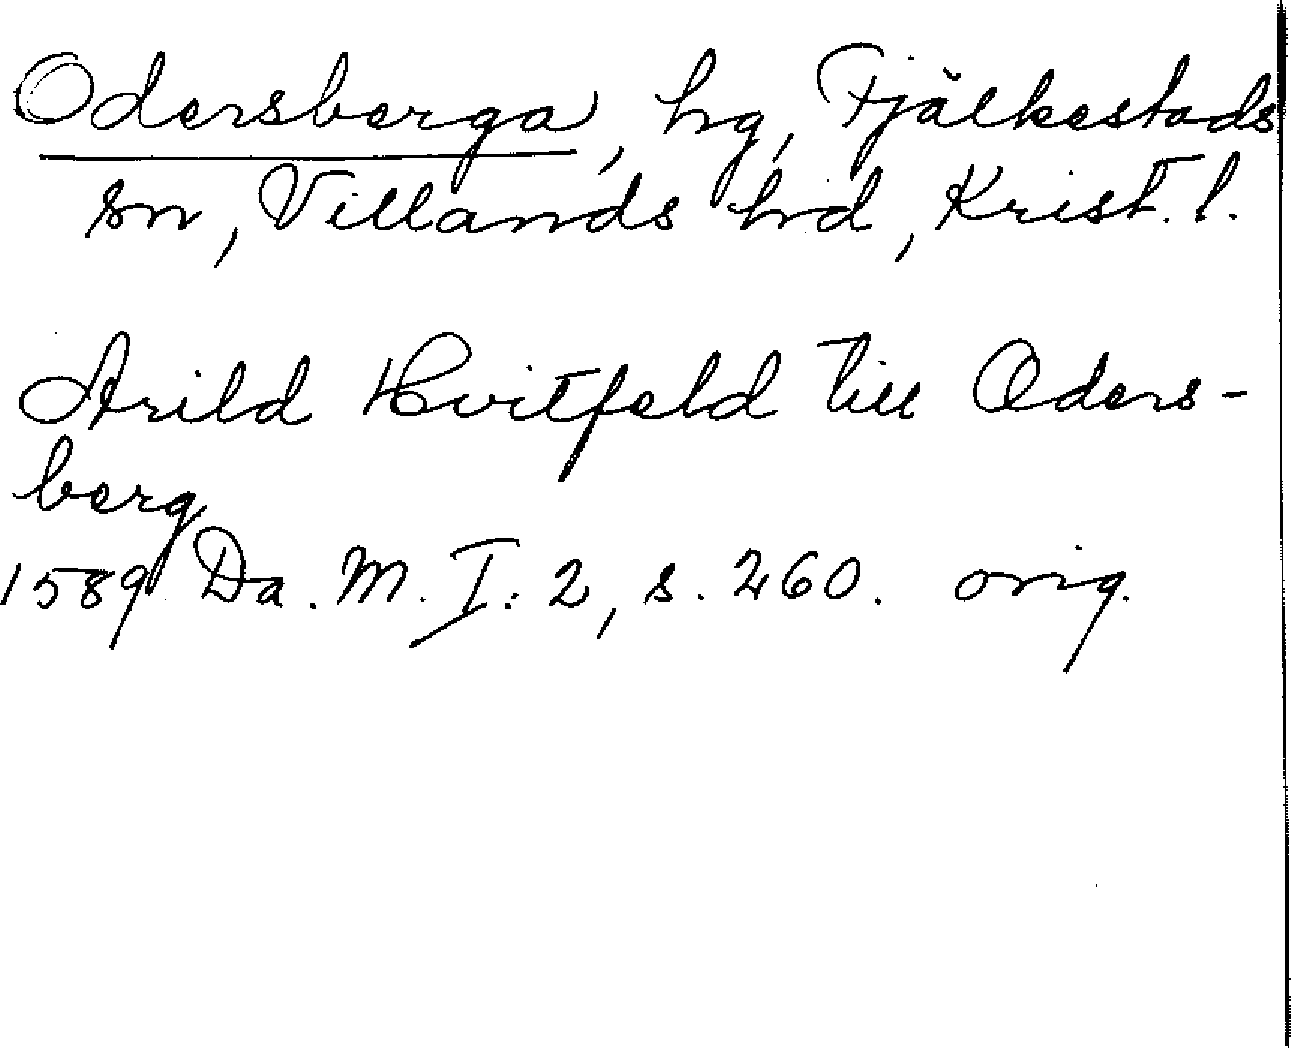 Odersberga, hg, Fjälkestads
sn, Villands hd, Krist. l.
Arild Hvitfeld till Oders-
berg
1589 Da. M. I: 2, s. 260. orig.